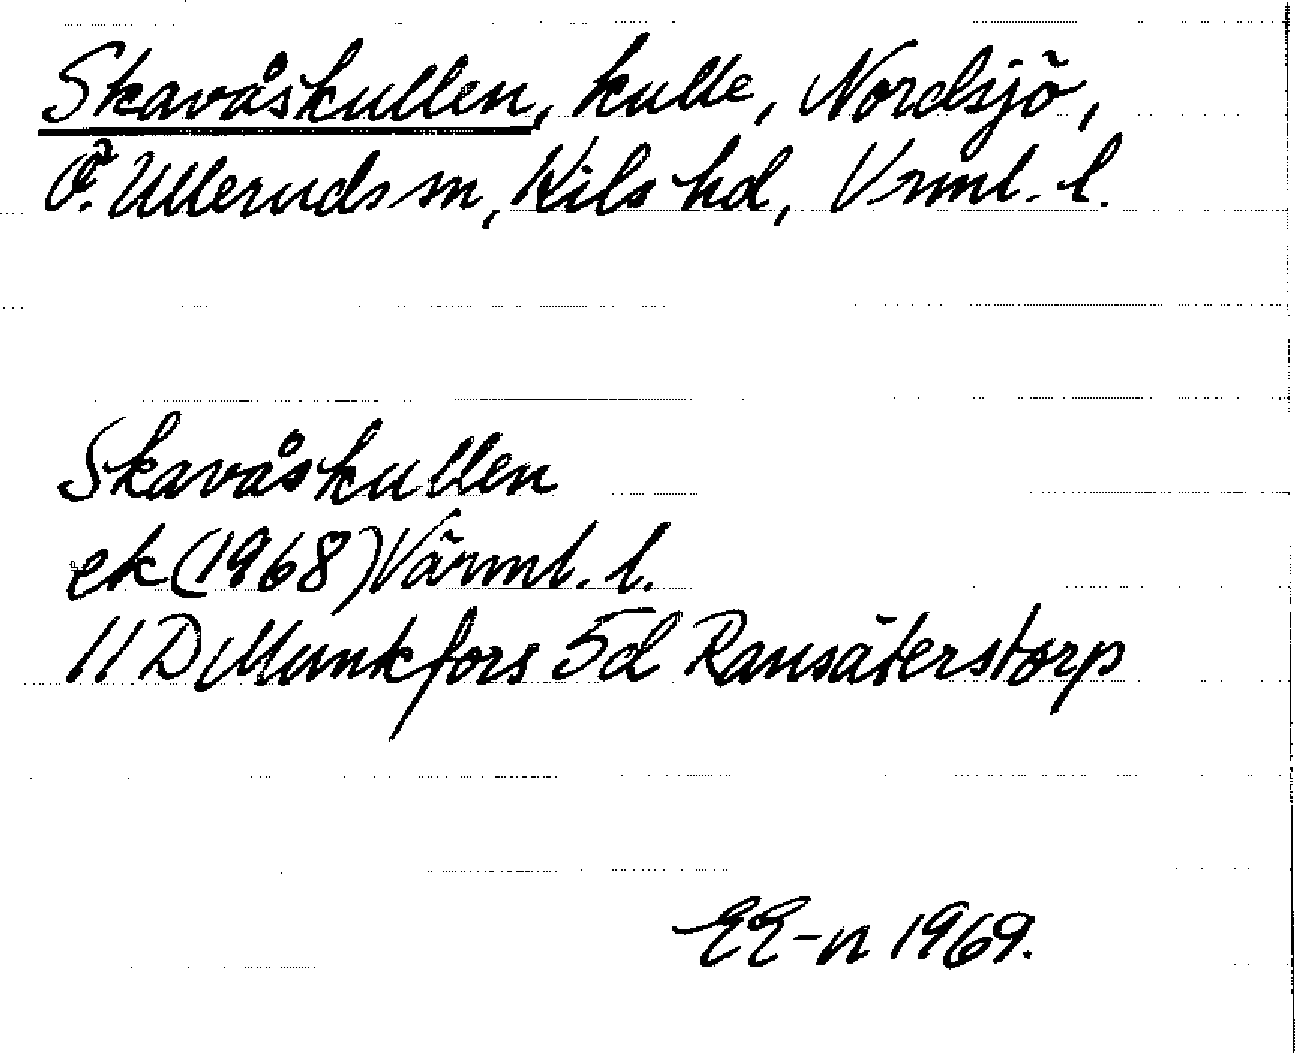 Skavåskullen, kulle, Nordsjö,
Ö. Ulleruds sn, Kils hd, Vrml. l.
Skavåskullen
ek (1968) Värml. l.
11 D Munkfors 5d Ransäterstorp
EE-n 1969.